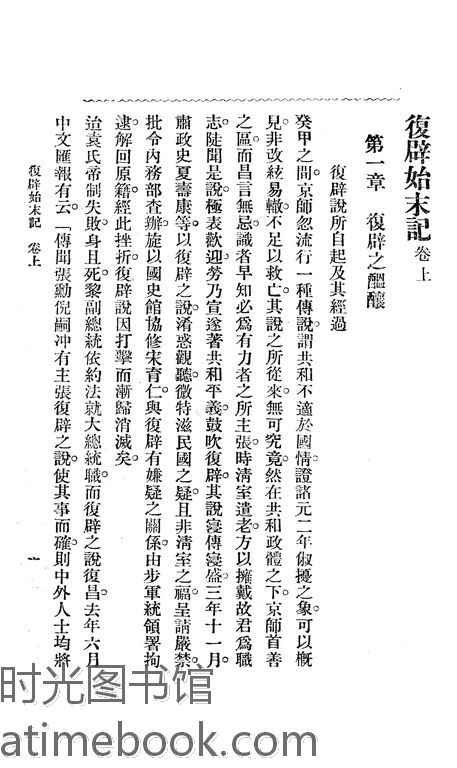 復辟始末記 卷上
第一章 復辟之醞釀
復辟說所自起及其經過
癸甲之間。京師忽流行一種傳說。謂共和不適於國情。證諸元二年俶擾之象。可以概
見。非改絃易轍。不足以救亡。其說之所從來。無可究竟。然在共和政體之下。京師首善
之區。而昌言無忌。識者早知必爲有力者之所主張。時淸室遺老。方以擁戴故君爲職
志。陡聞是說。極表歡迎。勞乃宣遂著共和平義。鼓吹復辟。其說寖傳寖盛。三年十一月。
肅政史夏壽康等。以復辟之說。淆惑觀聽。微特滋民國之疑。且非淸室之福。呈請嚴禁。
批令內務部查辦。旋以國史館協修宋育仁與復辟有嫌疑之關係。由步軍統領署拘
逮。解回原籍。經此挫折。復辟說因打擊而漸歸消滅矣。
迨袁氏帝制失敗。身且死。黎副總統依約法就大總統職。而復辟之說復昌。去年六月
中文匯報有云。「傳聞張勳倪嗣冲有主張復辟之說。使其事而確。則中外人士均將
復辟始末記 卷上
一
时光图书馆
atimebook.com